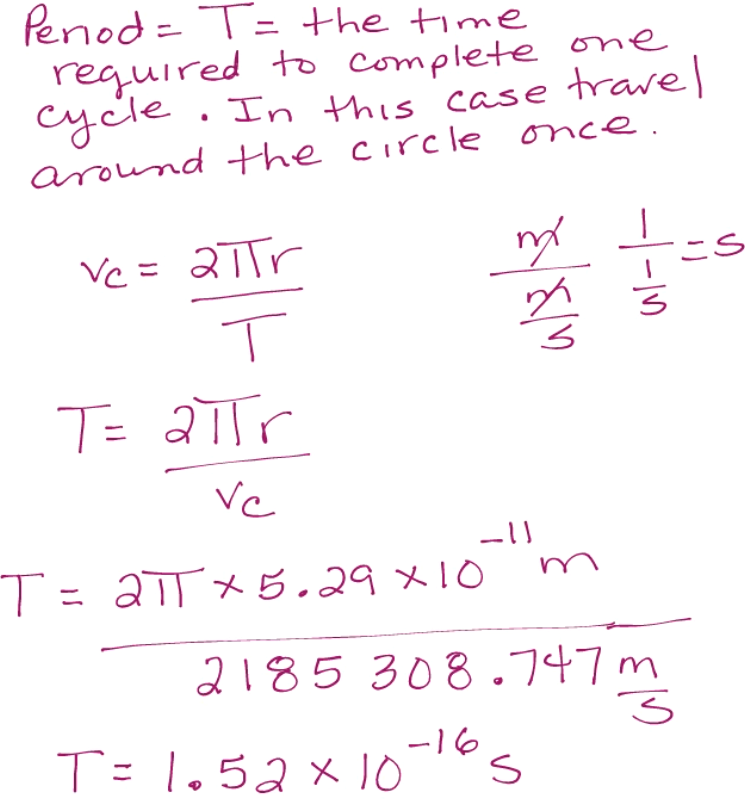 Period = T = the time
required to complete one
cycle. In this case travel
around the circle once.
vc = 2πr / T
m / (m/s)   1 / (1/s) = s
T = 2πr / vc
T = 2π × 5.29 × 10^-11 m / 2185 308.747 m/s
T = 1.52 × 10^-16 s